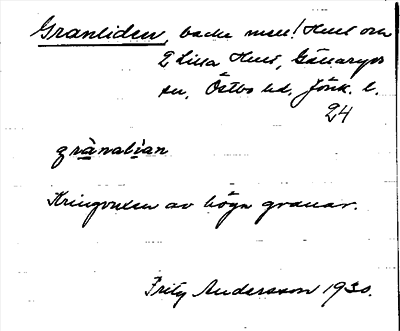 Granliden, backe mell. 1 Hult och
2 Lilla Hult, Gällaryds
sn, Östbo hd, Jönk. l.
24
grànalían
Kringvuxen av höga granar.
Fritz Andersson 1930.